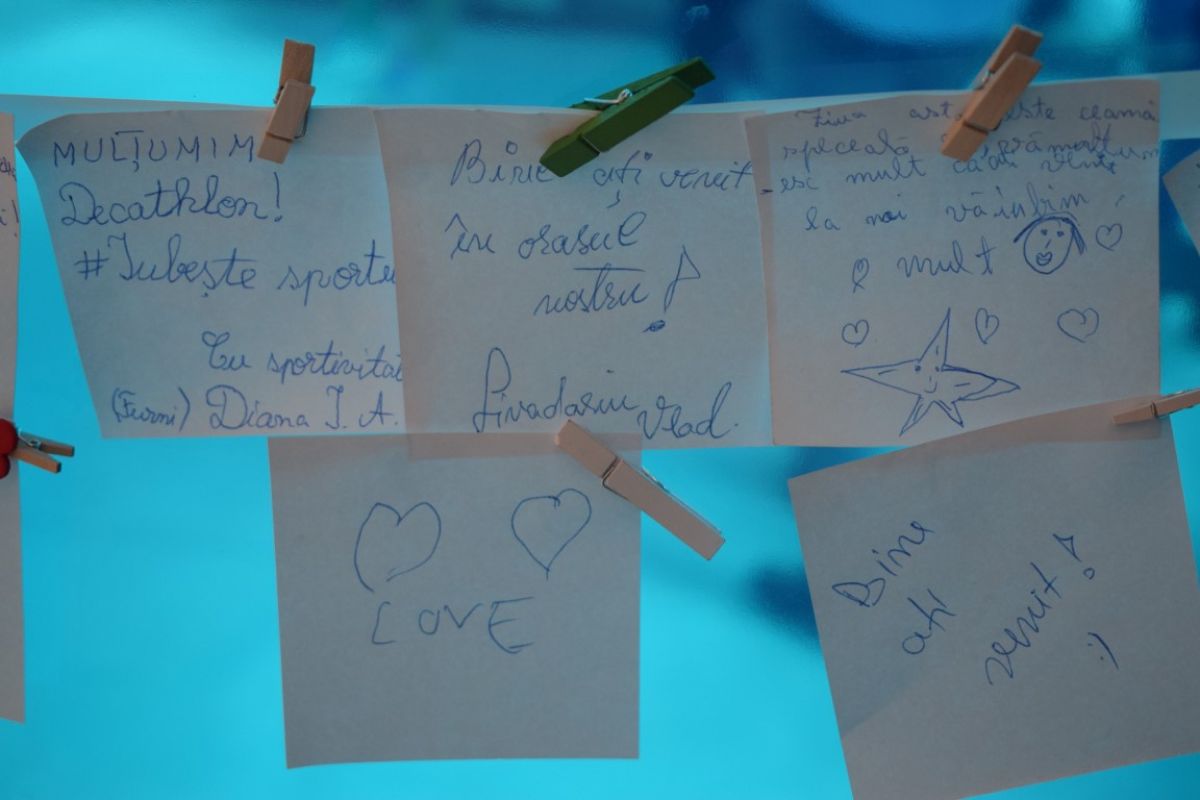 MULȚUMIM
Decathlon!
#Iubește sportu
Cu sportivitat
(Furni) Diana I. A.
Bine ați venit
în orasul
nostru!
Livadariu Vlad.
Ziua ast este ceamă
specială
esc mult că ati venit
la noi vă iubim
mult
LOVE
Bine
ati
venit!
:)